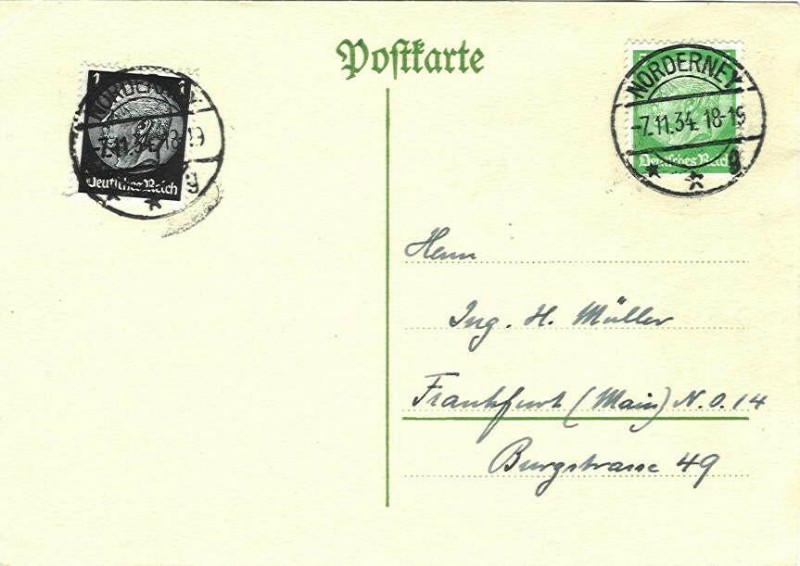 Postkarte
1
Deutsches Reich
NORDERNEY
-7.11.34. 18-19
g
NORDERNEY
-7.11.34. 18-19
g
Deutsches Reich
Herrn
Ing. H. Müller
Frankfurt (Main) N.O.14
Burgstrasse 49